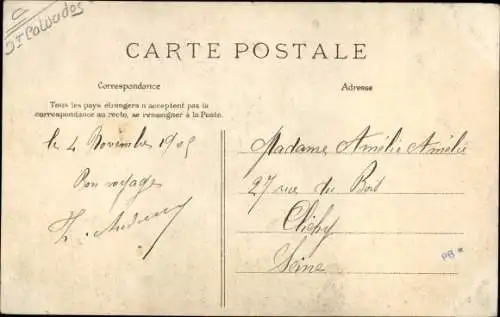 CARTE POSTALE
Correspondance
Adresse
Tous les pays étrangers n'acceptent pas la
correspondance au recto, se renseigner à la Poste.
le 4 Novembre 1905
Bon voyage
Madame Amélie Amélie
27 rue du Bois
Clichy
Seine
PB